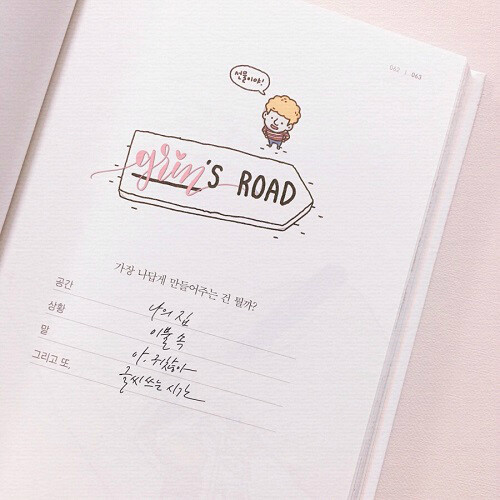 062 | 063
선물이야!
grin's ROAD
가장 나답게 만들어주는 건 뭘까?
공간 나의 집
상황 이불 속
말 아, 귀찮아
그리고 또, 글씨 쓰는 시간